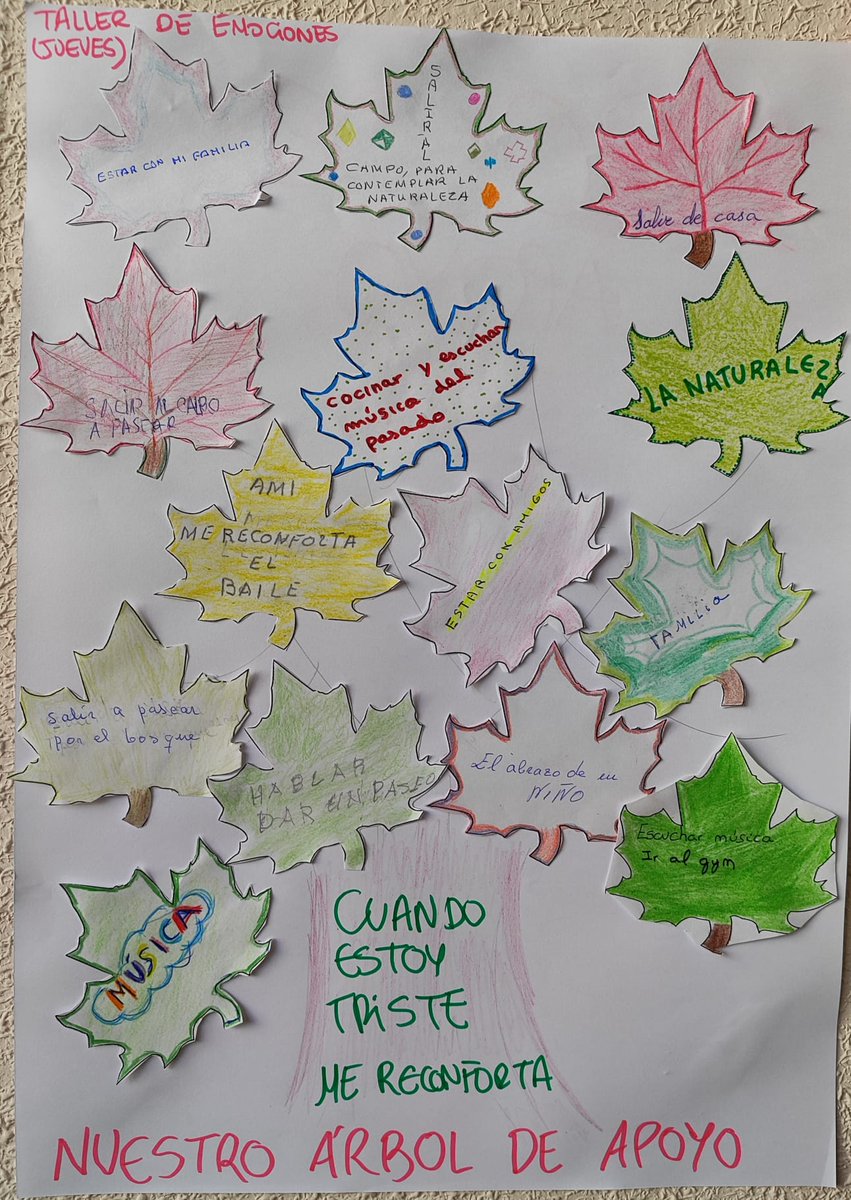 TALLER DE EMOCIONES
(JUEVES)
ESTAR CON MI FAMILIA
SALIR AL
CAMPO, PARA
CONTEMPLAR LA
NATURALEZA
Salir de casa
SALIR AL CAPO
A PASEAR
cocinar y escuchar
música del
pasado
LA NATURALEZA
AMI
ME RECONFORTA
EL
BAILE
ESTAR CON AMIGOS
FAMILIA
Salir a pasear
por el bosque
HABLAR
DAR UN PASEO
El abrazo de un
NIÑO
Escuchar música
Ir al gym
MÚSICA
CUANDO
ESTOY
TRISTE
ME RECONFORTA
NUESTRO ÁRBOL DE APOYO